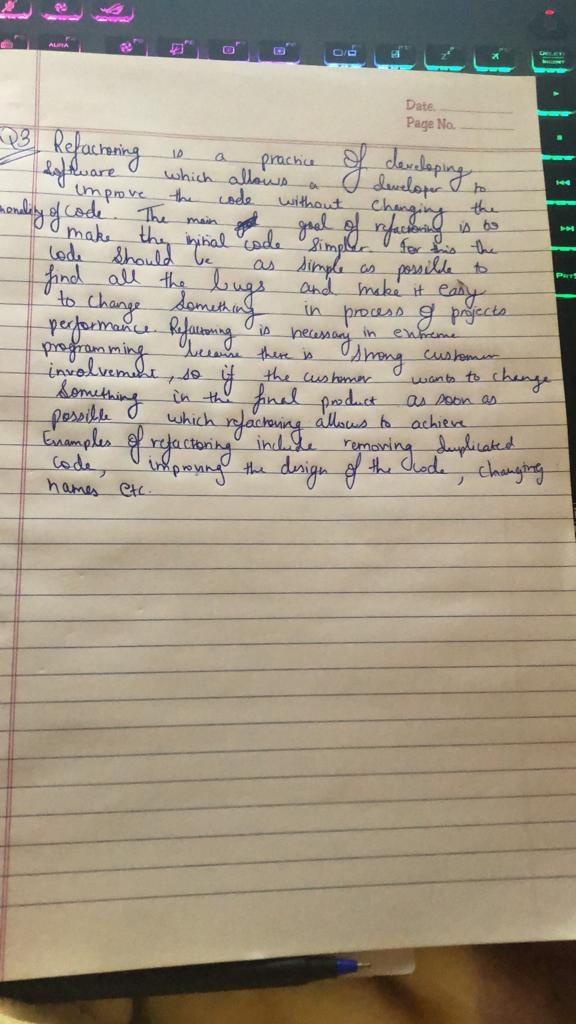 AURA
DELETE
INSERT
Date.
Page No.
Q3 Refactoring is a practice of developing
software which allows a developer to
improve the code without changing the
of code. The main goal of refactoring is to
make the initial code simpler. For this the
code should be as simple as possible to
find all the bugs and make it easy
to change something in process of projects
performance. Refactoring is necessary in extreme
programming because there is strong customer
involvement, so if the customer wants to change
something in the final product as soon as
possible which refactoring allows to achieve
Examples of refactoring include removing duplicated
code, improving the design of the code, changing
names etc.